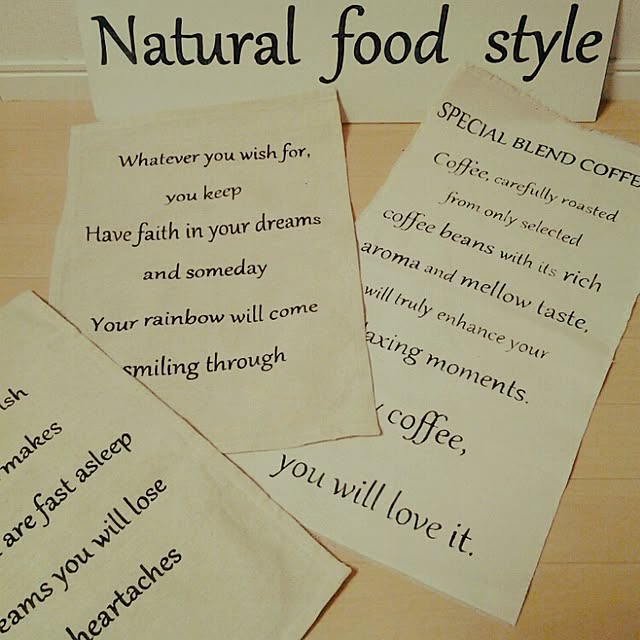 Natural food style
Whatever you wish for,
you keep
Have faith in your dreams
and someday
Your rainbow will come
smiling through
SPECIAL BLEND COFFE
Coffee, carefully roasted
from only selected
coffee beans with its rich
aroma and mellow taste,
will truly enhance your
laxing moments.
y coffee,
you will love it.
ish
makes
are fast asleep
eams you will lose
heartaches